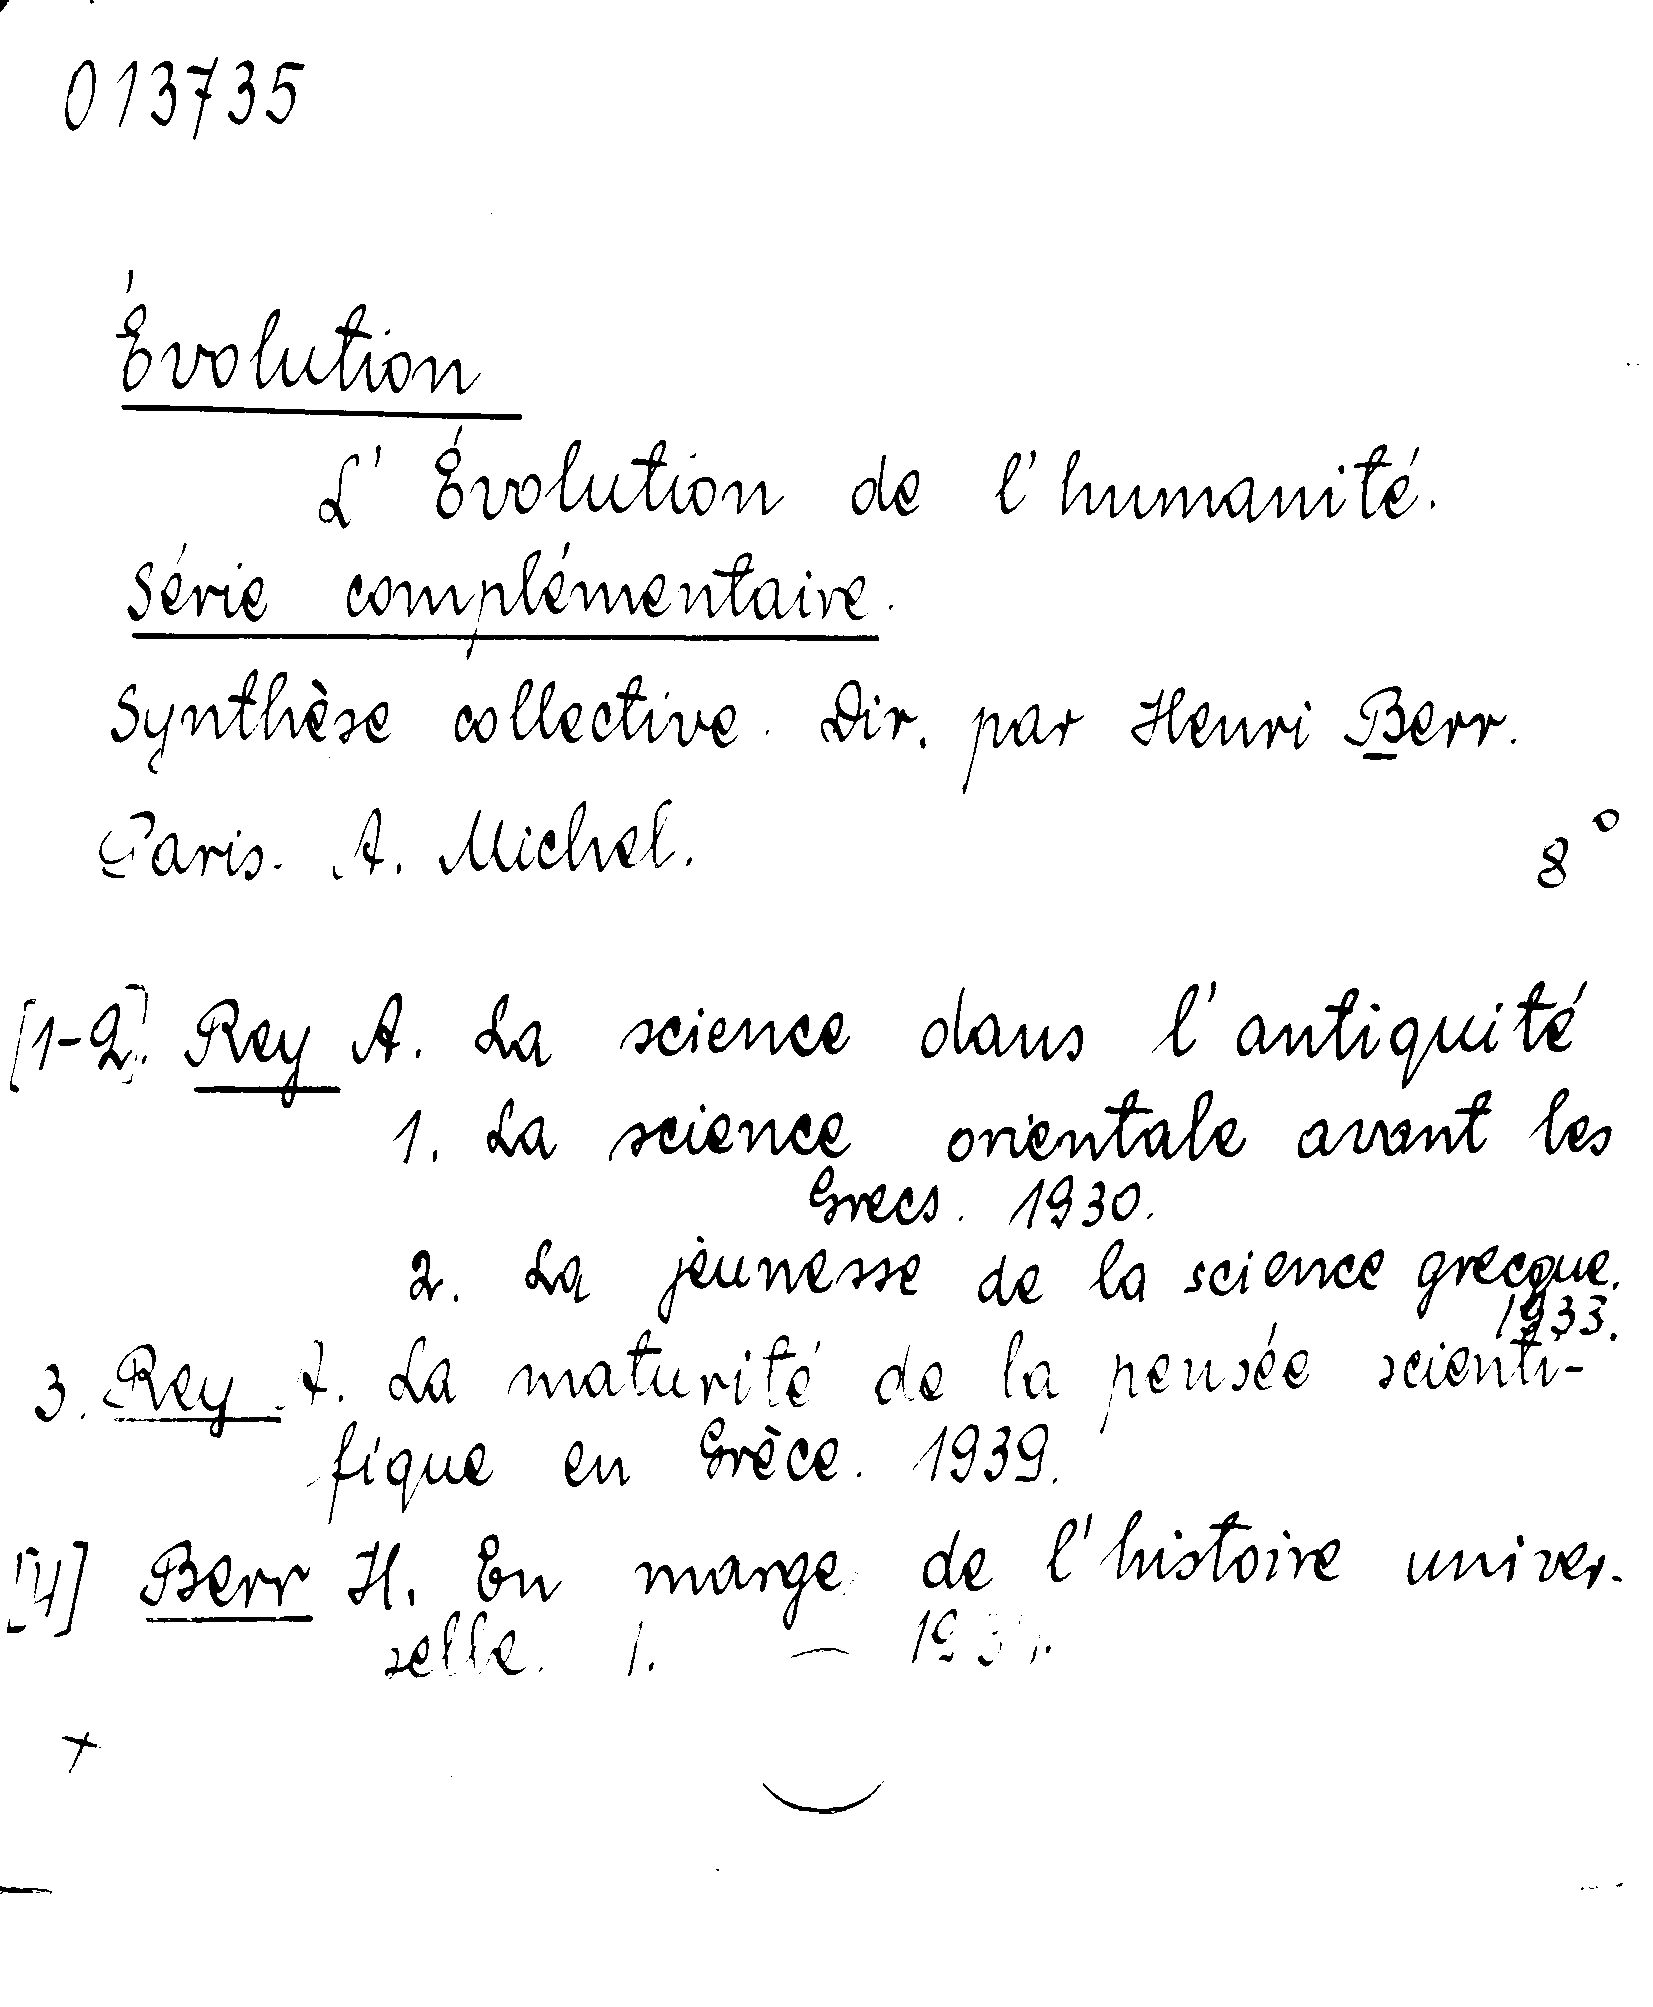 013735
Évolution
L'Évolution de l'humanité.
Série complémentaire.
Synthèse collective. Dir. par Henri Berr.
Paris. A. Michel. 8°
[1-2]. Rey A. La science dans l'antiquité
1. La science orientale avant les
Grecs. 1930.
2. La jeunesse de la science grecque.
1933.
3. Rey A. La maturité de la pensée scienti-
fique en Grèce. 1939.
[4] Berr H. En marge de l'histoire univer-
selle. 1. —
+